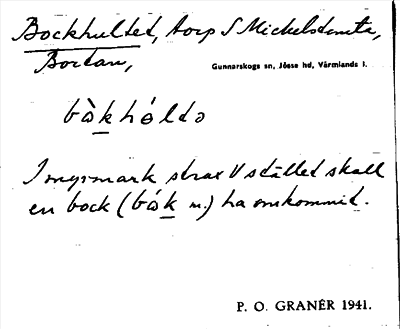 Bockhultet, torp S Mickelstomta,
Bortan,
Gunnarskogs sn, Jösse hd, Värmlands l.
bò̀khólta
I myrmark strax V stället skall
en bock (bók m.) ha omkommit.
P. O. GRANÉR 1941.